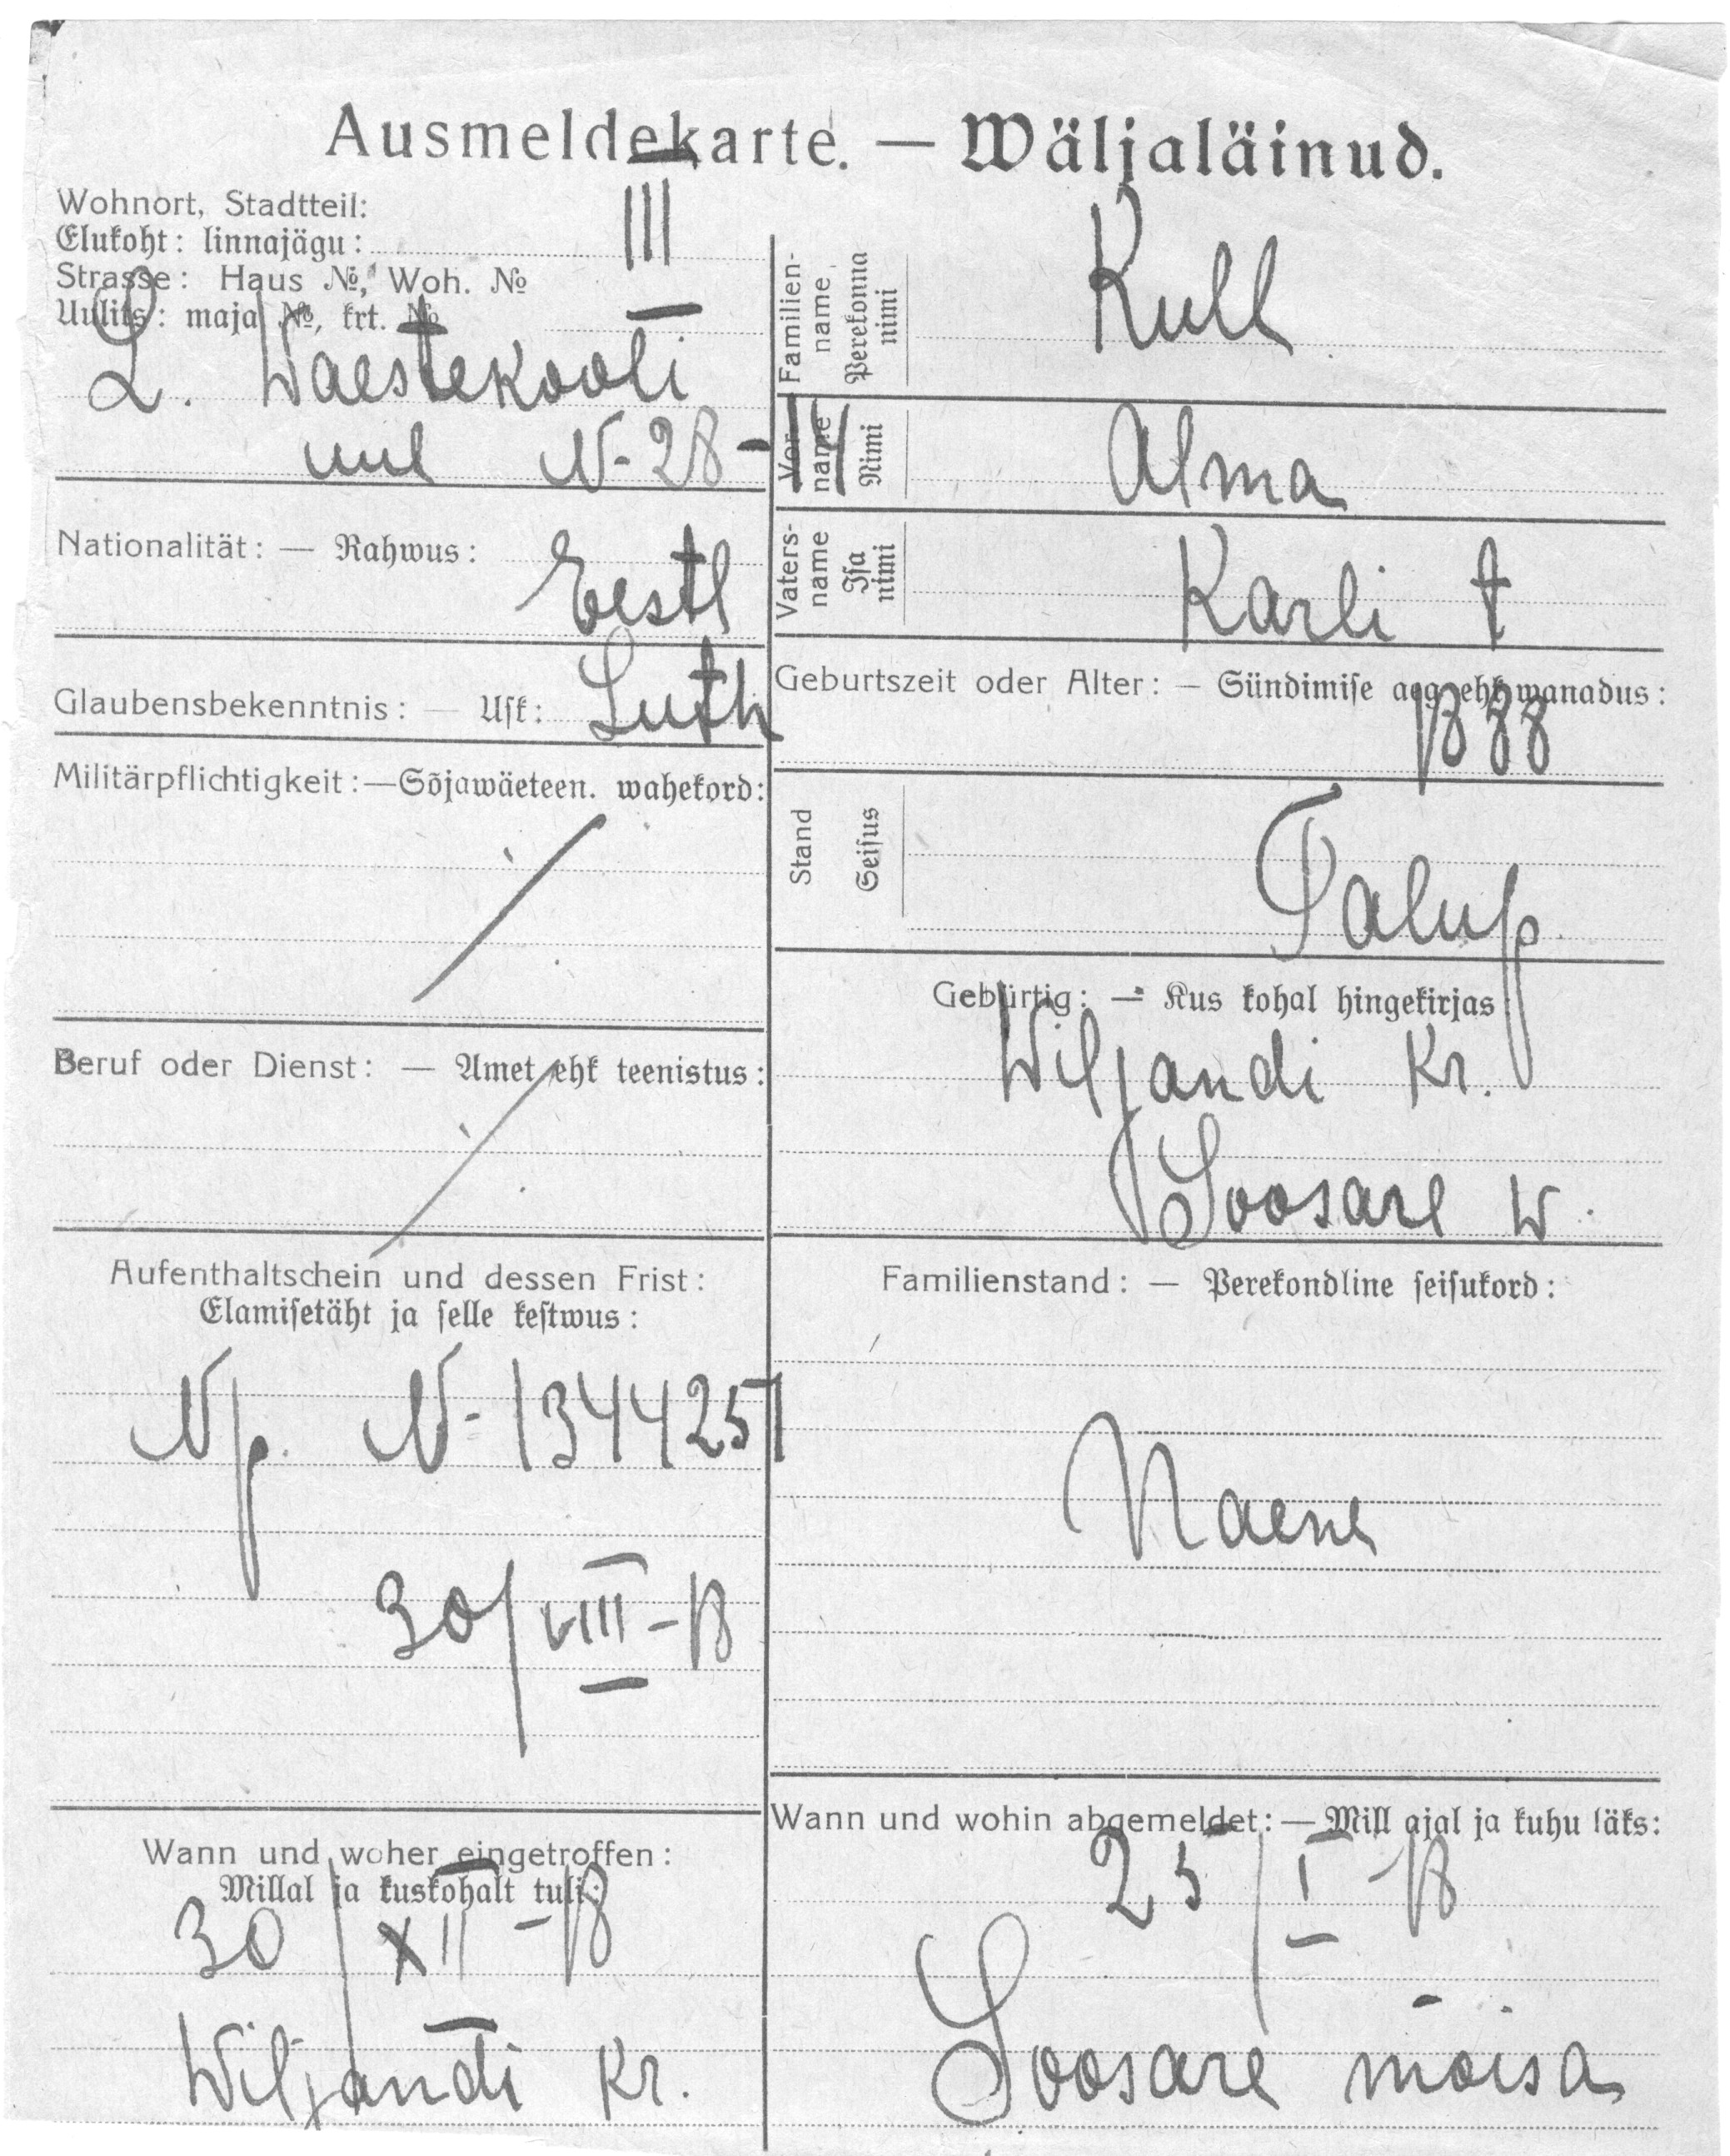 Ausmeldekarte. — Wäljaläinud.
Wohnort, Stadtteil:
Elukoht: linnajägu:
III
Strasse: Haus №, Woh. №
Uulits: maja №, krt. №
L. Waestekooli
uul N-28-4
Nationalität: — Rahwus:
Eestl
Glaubensbekenntnis: — Usk:
Luth
Militärpflichtigkeit:—Sõjawäeteen. wahekord:
Beruf oder Dienst: — Amet ehk teenistus:
Aufenthaltschein und dessen Frist:
Elamisetäht ja selle kestwus:
Np. N-1344251
30/VIII-18
Wann und woher eingetroffen:
Millal ja kuskohalt tuli:
30/XII-18
Wiljandi Kr.
Familien-
name
Perekonna
nimi
Kull
Vor-
name
Nimi
Alma
Vaters-
name
Isa
nimi
Karli t
Geburtszeit oder Alter: — Sündimise aeg ehk wanadus:
Stand
Seisus
Talup
Gebürtig: — Kus kohal hingekirjas
Wiljandi Kr.
Soosare W.
Familienstand: — Perekondline seisukord:
Naene
Wann und wohin abgemeldet: — Mill ajal ja kuhu läks:
25/I-18
Soosare mõisa